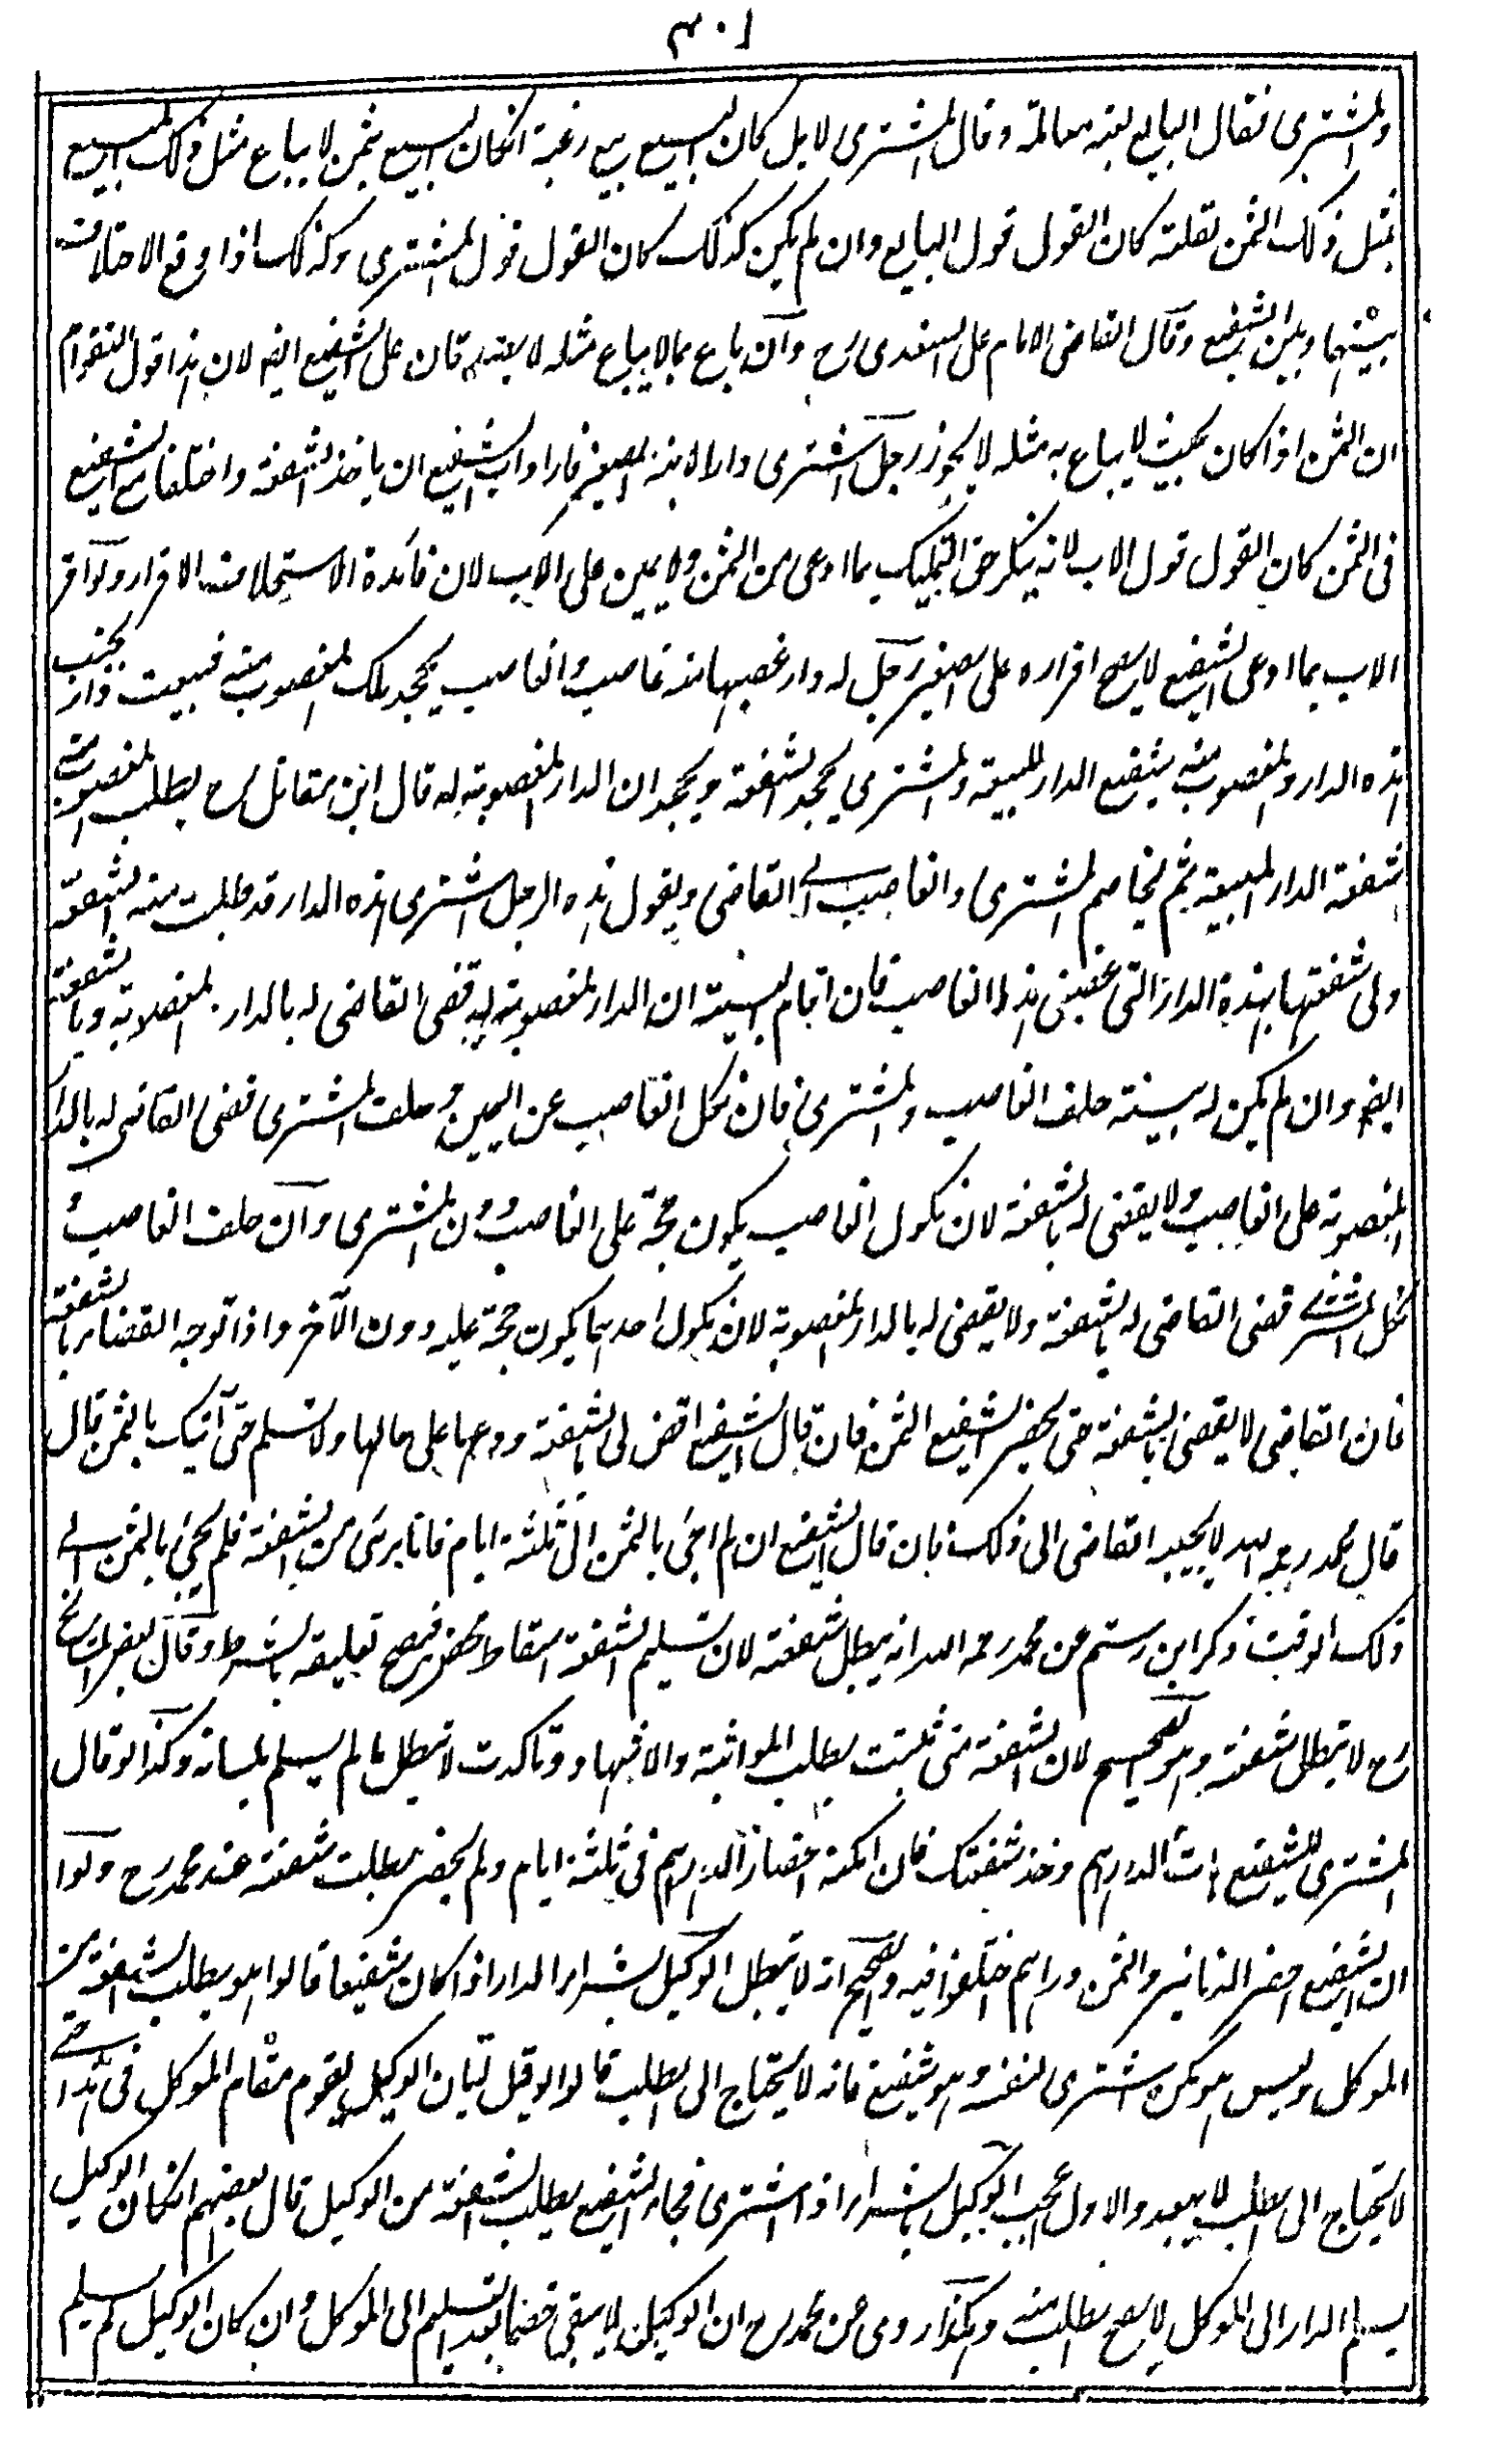 ٣٠١
والمشترى فقال البايع بعته معاملة وقال المشترى لا بل كان البيع بيع رغبة انكان البيع بثمن لا يباع مثل ذلك المبيع
بمثل ذلك الثمن لقلته كان القول قول البايع وان لم يكن كذلك كان القول قول المشترى وكذلك اذا وقع الاختلاف
بينهما وبين الشفيع وقال القاضى الامام على السغدى رح وان باع بما لا يباع مثله لا يعتبر على الشفيع ايض لان هذا قول
ان الثمن اذا كان بحيث لا يباع به مثله لا يجوز رجل اشترى دارا لابنه الصغير فاراد الشفيع ان ياخذ بالشفعة واختلفا مع الشفيع
فى الثمن كان القول قول الاب لانه ينكر حق التمليك بما ادعى من الثمن ولا يمين على الاب لان فائدة الاستحلاف الاقرار ولو اقر
الاب بما ادعى الشفيع لا يصح اقراره على الصغير رجل له دار غصبها منه غاصب والغاصب يجحد ملك المغصوب منه فبيعت دار بجنب
هذه الدار والمغصوب منه شفيع الدار المبيعة والمشترى يجحد الشفعة ويجحد ان الدار المغصوبة له قال ابن مقاتل رح يطلب المغصوب منه
شفعة الدار المبيعة ثم يخاصم المشترى والغاصب الى القاضى ويقول هذه الرجل اشترى هذه الدار قد طلبت منه الشفعة
ولى شفعتها بهذه الدار التى غصبنى هذا الغاصب فان اقام البينة ان الدار المغصوبة له قضى القاضى له بالدار المغصوبة وبالشفعة
ايض وان لم يكن له بينة حلف الغاصب والمشترى فان نكل الغاصب عن اليمين وحلف المشترى قضى القاضى له بالدار
المغصوبة على الغاصب ولا يقضى له بالشفعة لان نكول الغاصب يكون حجة على الغاصب دون المشترى وان حلف الغاصب و
نكل المشترى قضى القاضى له بالشفعة ولا يقضى له بالدار المغصوبة لان نكول احدهما يكون حجة عليه دون الآخر واذا توجه القضاء بالشفعة
فان القاضى لا يقضى بالشفعة حتى يحضر الشفيع الثمن فان قال الشفيع اقض لى بالشفعة ودعها على حالها ولا تسلم حتى آتيك بالثمن قال
قال محمد رحمه الله لا يجيبه القاضى الى ذلك فان قال الشفيع ان لم اجئ بالثمن الى ثلثة ايام فانا برئ من الشفعة فلم يجئ بالثمن الى
ذلك الوقت ذكر ابن رستم عن محمد رحمه الله انه يبطل شفعته لان تسليم الشفعة اسقاط محض فيصح تعليقه بالشرط وقال بعض المشايخ
رح لا تبطل شفعته وهو الصحيح لان الشفعة متى ثبتت بطلب المواثبة والاشهاد وتاكدت لا تبطل ما لم يسلم بلسانه وكذا لو قال
المشترى للشفيع هات الدراهم وخذ شفعتك فان امكنه احضار الدراهم فى ثلثة ايام ولم يحضر بطلت شفعته عند محمد رح ولو
ان الشفيع احضر الدنانير والثمن دراهم اختلفوا فيه والصحيح انه لا تبطل الوكيل بشراء الدار اذا كان شفيعا قالوا هو يطلب الشفعة من
الموكل وليس هو كمن اشترى لنفسه وهو شفيع فانه لا يحتاج الى الطلب قالوا لو قيل بان الوكيل يقوم مقام الموكل فى هذا حتى
لا يحتاج الى الطلب لا يبعد والاول اعجب الوكيل بالشراء اذا اشترى فجاء الشفيع يطلب الشفعة من الوكيل قال بعضهم انكان الوكيل
يسلم الدار الى الموكل لا يصح الطلب منه وهكذا روى عن محمد رح ان الوكيل لا يبقى خصما بعد التسليم الى الموكل وان كان الوكيل لم يسلم